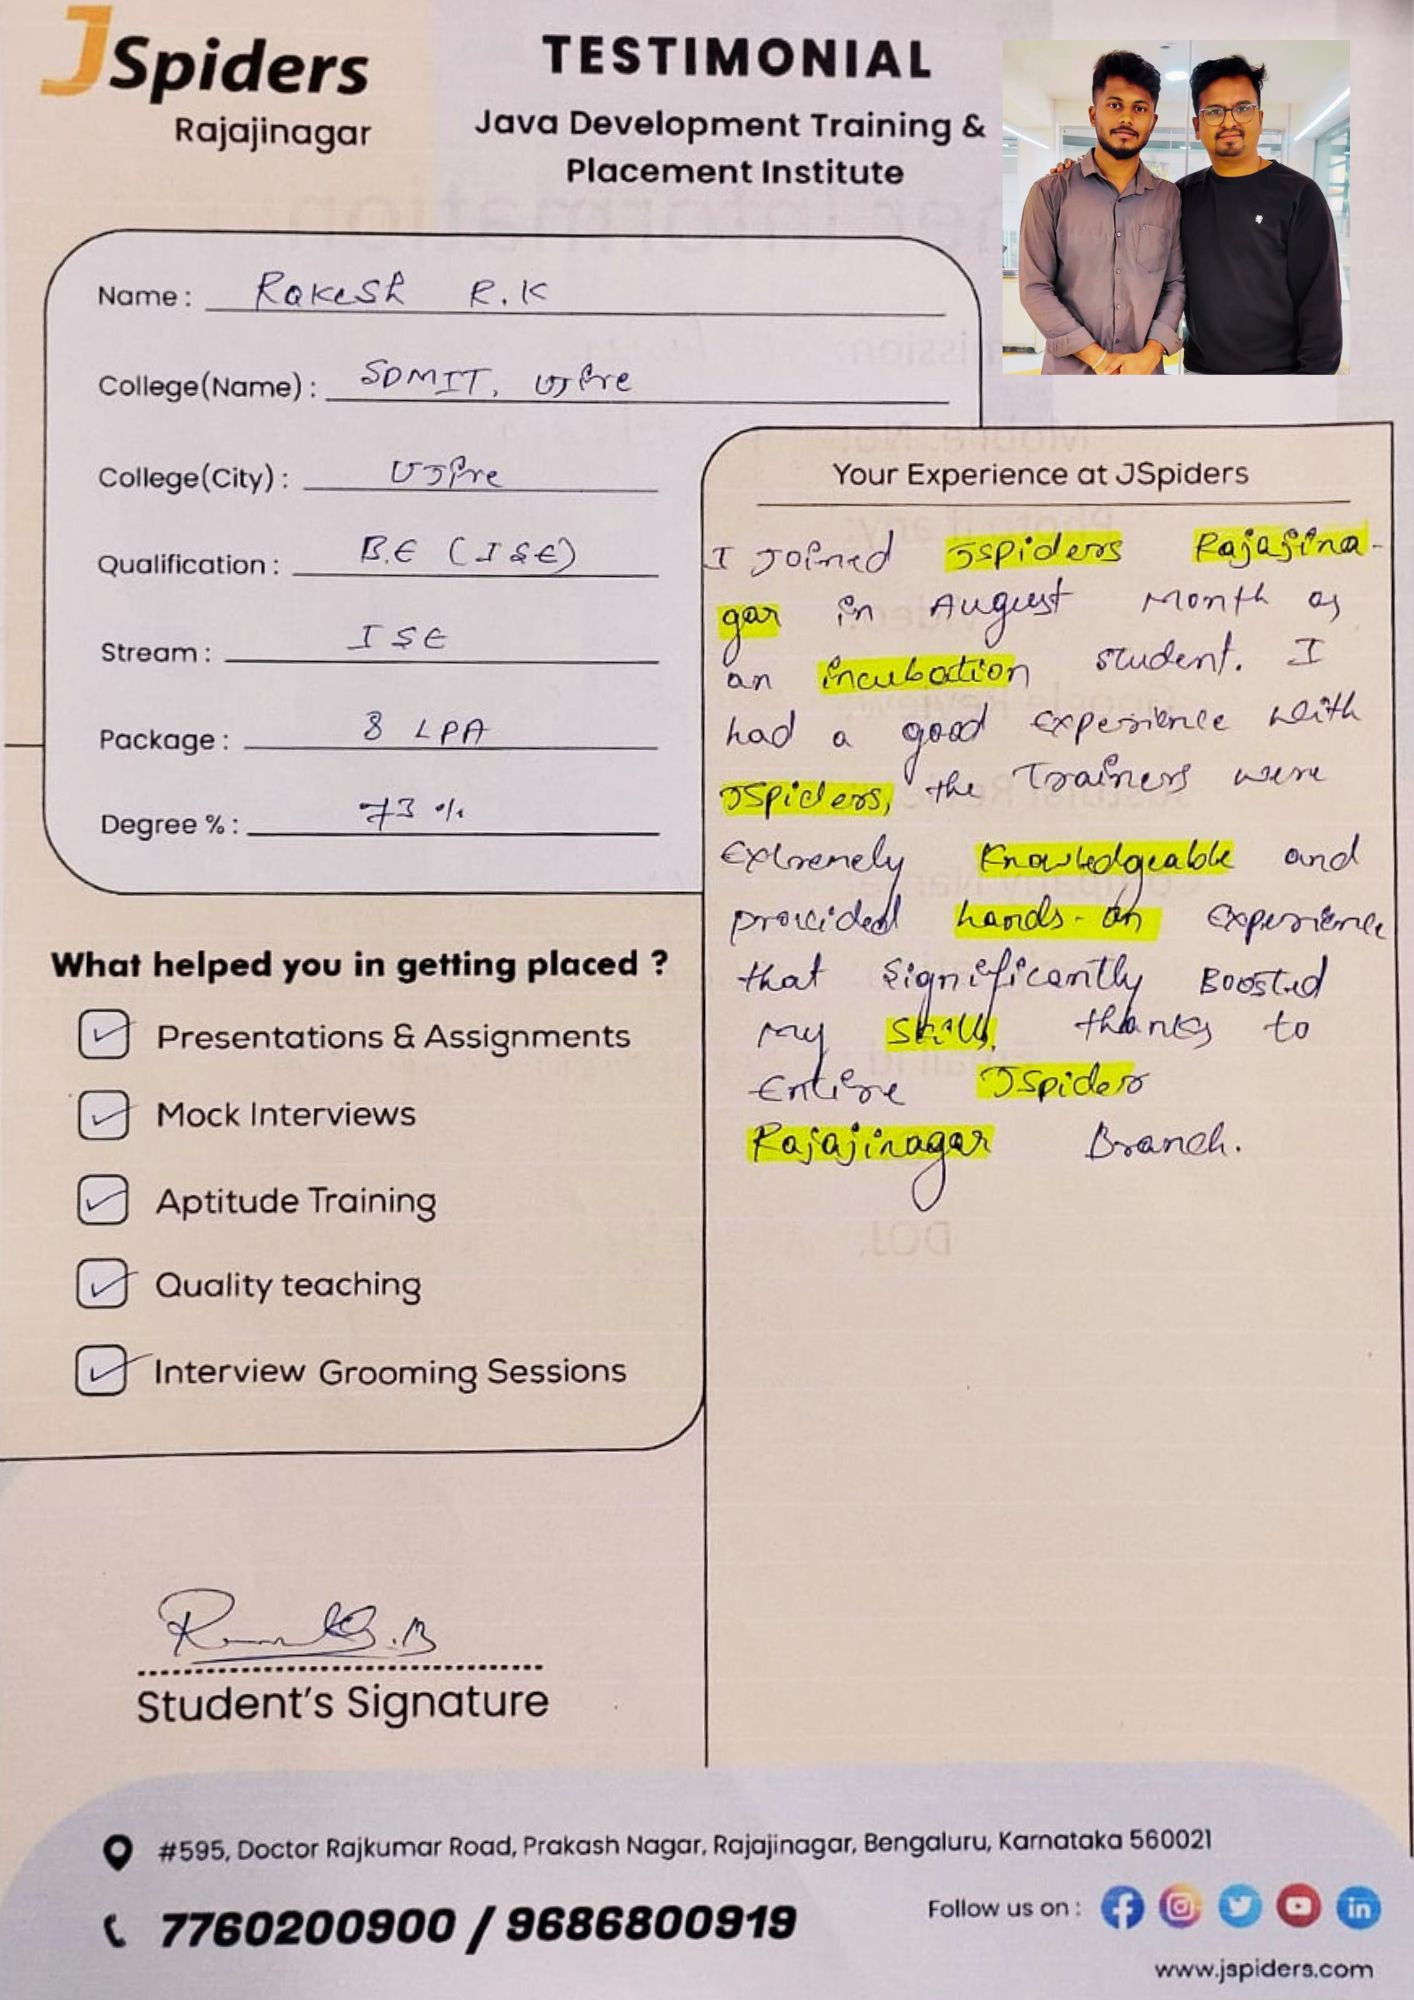 JSpiders
Rajajinagar
TESTIMONIAL
Java Development Training &
Placement Institute
Name : Rakesh R.K
College(Name) : SDMIT, Ujire
College(City) : Ujire
Qualification : B.E (ISE)
Stream : ISE
Package : 3 LPA
Degree % : 73 %
What helped you in getting placed ?
Presentations & Assignments
Mock Interviews
Aptitude Training
Quality teaching
Interview Grooming Sessions
Your Experience at JSpiders
I Joined JSpiders Rajajina-
gar in August Month as
an incubation student. I
had a good experience with
JSpiders, the Trainers were
Extremely Knowledgeable and
provided hands-on experience
that significantly Boosted
my skills, thanks to
Entire JSpiders
Rajajinagar Branch.
Student's Signature
#595, Doctor Rajkumar Road, Prakash Nagar, Rajajinagar, Bengaluru, Karnataka 560021
7760200900 / 9686800919
Follow us on :
www.jspiders.com